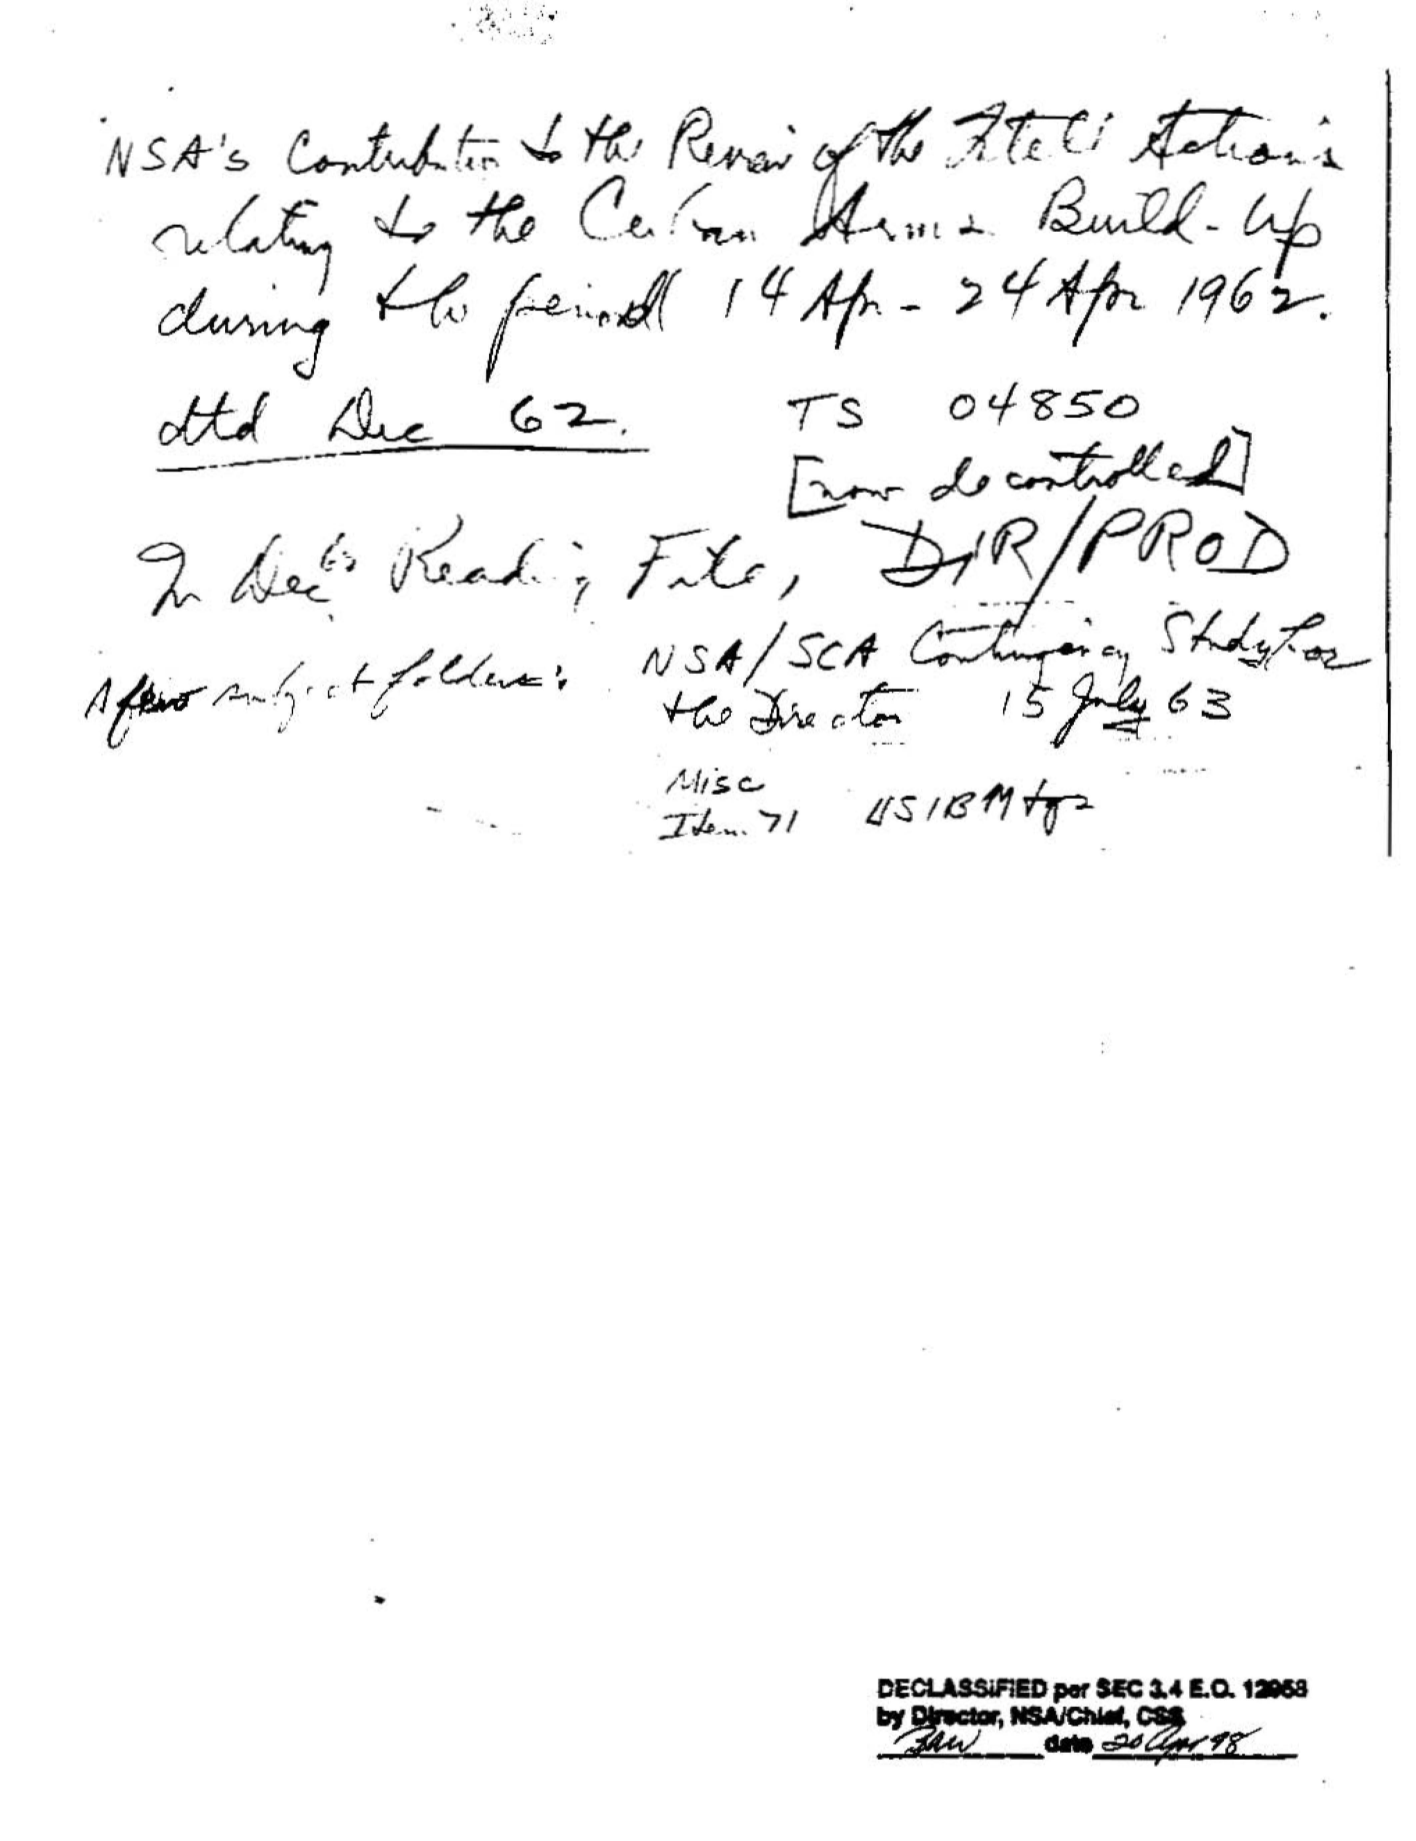 NSA's Contribution to the Review of the Intell Actions
relating to the Cuban Arms Build-Up
during the period 14 Apr - 24 Apr 1962.
dtd Dec 62.
TS 04850
[now decontrolled]
In Dec Reading File, DIR/PROD
A few subject folders:
NSA/SCA Contingency Study for
the Director 15 July 63
Misc
Item 71 USIB Mtgs
DECLASSIFIED per SEC 3.4 E.O. 12958
by Director, NSA/Chief, CSS
date 20 Apr 98